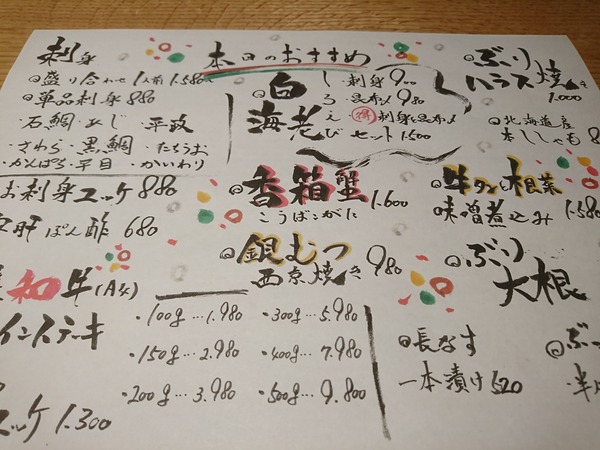 本日のおすすめ
刺身
盛り合わせ 1人前 1.580
単品刺身 880
・石鯛・あじ・平政
・さわら・黒鯛・たちうお
・かんぱち・平目・かいわり
お刺身ユッケ 880
肝ぽん酢 680
白海老
しろえび
・刺身 900
・昆布〆 980
得 刺身と昆布〆
セット 1.500
ぶり
ハラス焼き
1.000
北海道産
本ししゃも 8
香箱蟹 1.600
こうばこがに
牛タンと根菜
味噌煮込み 1.580
銀むつ
西京焼き 980
ぶり
大根
和牛(A4)
インステーキ
・100g…1.980
・150g…2.980
・200g…3.980
・300g…5.980
・400g…7.980
・500g…9.800
ユッケ 1.300
長なす
一本漬け 520